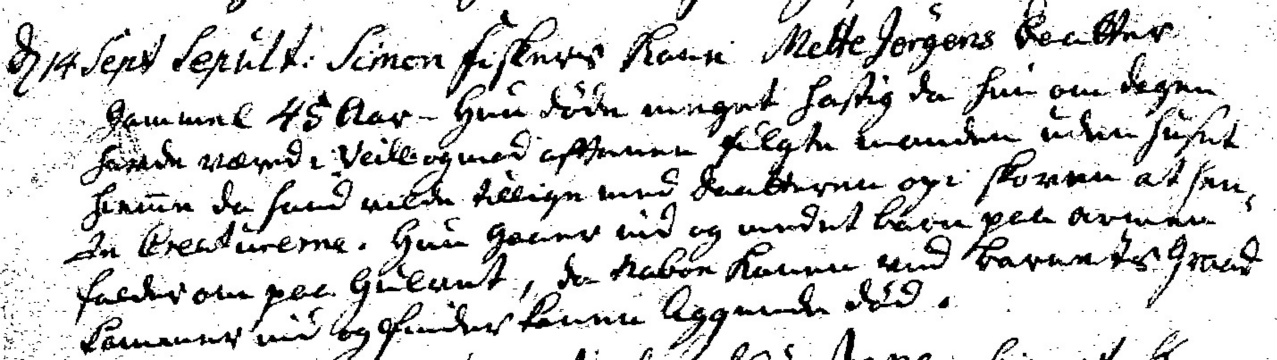 D 14 Sept Sepult: Simon fiskers Kone Mette Jørgens Daatter
Gammel 45 Aar – Hun døde meget hastig da hun om dagen
hafde været i Veille og mod aftenen fulgte manden uden huset
hiemme da hand vilde tillige med daatteren op i skoven at hen,
te Creaturerne. Hun gaaer ind og med et barn paa armen
falder om paa Gulvet, da Naboe Konen ved barnets Graad
kommer ind og finder konen liggende død.